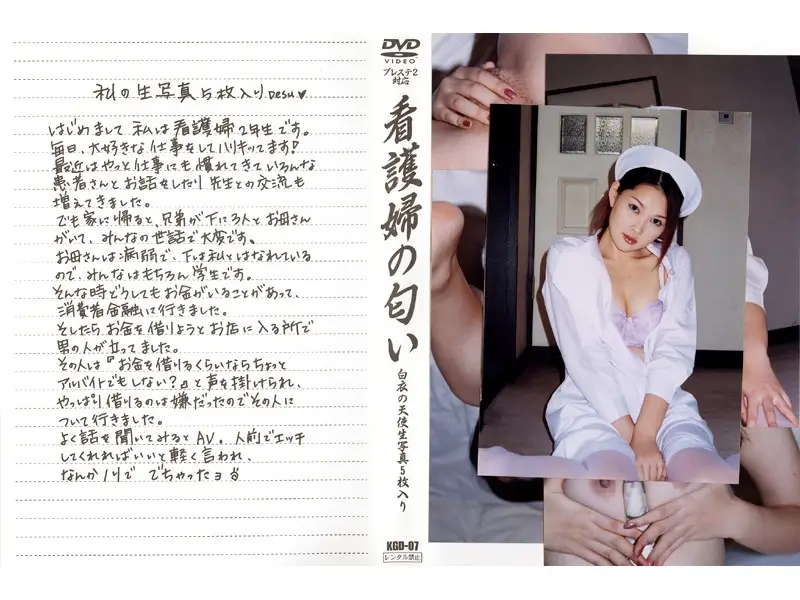 私の生写真5枚入りDesu♥
はじめまして 私は看護婦2年生です。
毎日、大好きな仕事をしてハリキッてます!
最近はやっと仕事にも慣れてきていろんな
患者さんとお話をしたり 先生との交流も
増えてきました。
でも家に帰ると、兄弟が下に3人とお母さん
がいて、みんなの世話で大変です。
お母さんは病弱で、下は私とはなれている
ので、みんなはもちろん学生です。
そんな時どうしてもお金がいることがあって、
消費者金融に行きました。
そしたらお金を借りようとお店に入る所で
男の人が立ってました。
その人は『お金を借りるくらいならちょっと
アルバイトでもしない?』と声を掛けられ、
やっぱり借りるのは嫌だったのでその人に
ついて行きました。
よく話を聞いてみるとAV。人前でエッチ
してくれればいいと軽く言われ、
なんかノリで でちゃったヨ
DVD
VIDEO
プレステ2
対応
看護婦の匂い
白衣の天使生写真5枚入り
KGD-07
レンタル禁止